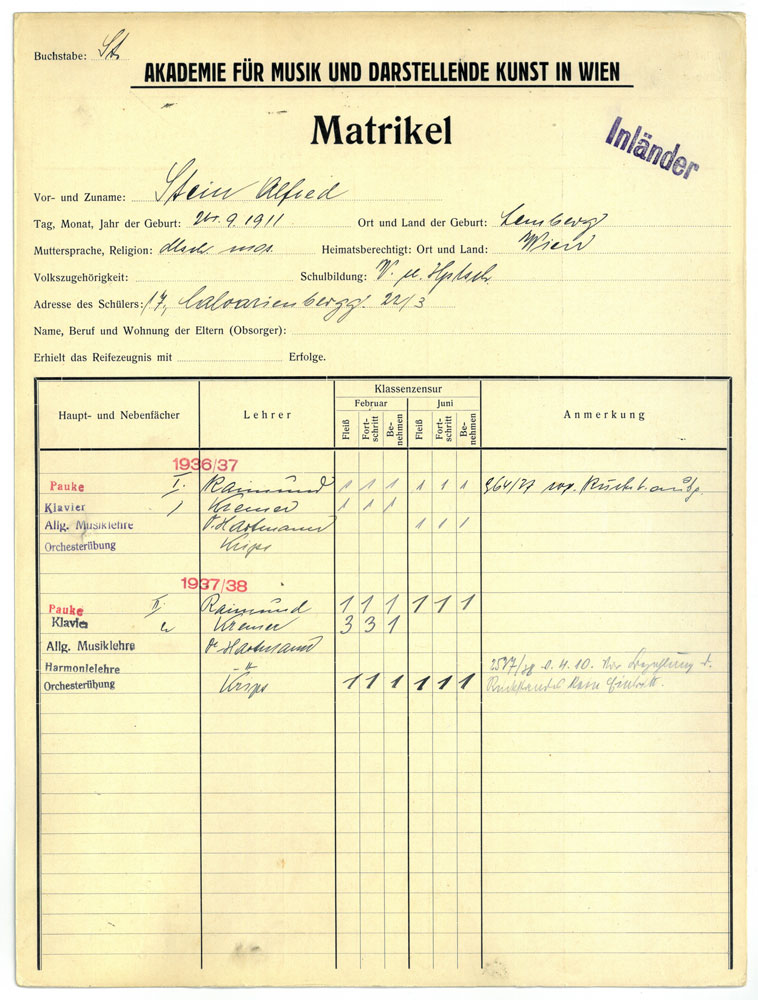 Buchstabe: St
AKADEMIE FÜR MUSIK UND DARSTELLENDE KUNST IN WIEN
Matrikel
Inländer
Vor- und Zuname: Stein Alfred
Tag, Monat, Jahr der Geburt: 9. 1911 Ort und Land der Geburt: Lemberg
Muttersprache, Religion: dtsch. mos. Heimatsberechtigt: Ort und Land: Wien
Volkszugehörigkeit: Schulbildung: V. u. Hptsch.
Adresse des Schülers: 17, Calvarienbergg. 22/3
Name, Beruf und Wohnung der Eltern (Obsorger):
Erhielt das Reifezeugnis mit Erfolge.
Haupt- und Nebenfächer Lehrer Klassenzensur Anmerkung
Februar Juni
Fleiß Fort-schritt Be-nehmen Fleiß Fort-schritt Be-nehmen
1936/37
Pauke I. Raimund 1 1 1 1 1 1 964/37
Klavier 1 Kremer 1 1 1
Allg. Musiklehre v. Hartmann 1 1 1
Orchesterübung Krips
1937/38
Pauke II. Raimund 1 1 1 1 1 1
Klavier 2 Kremer 3 3 1
Allg. Musiklehre v. Hartmann
Harmonielehre "
Orchesterübung Krips 1 1 1 1 1 1 Rückstandes kein Eintritt.